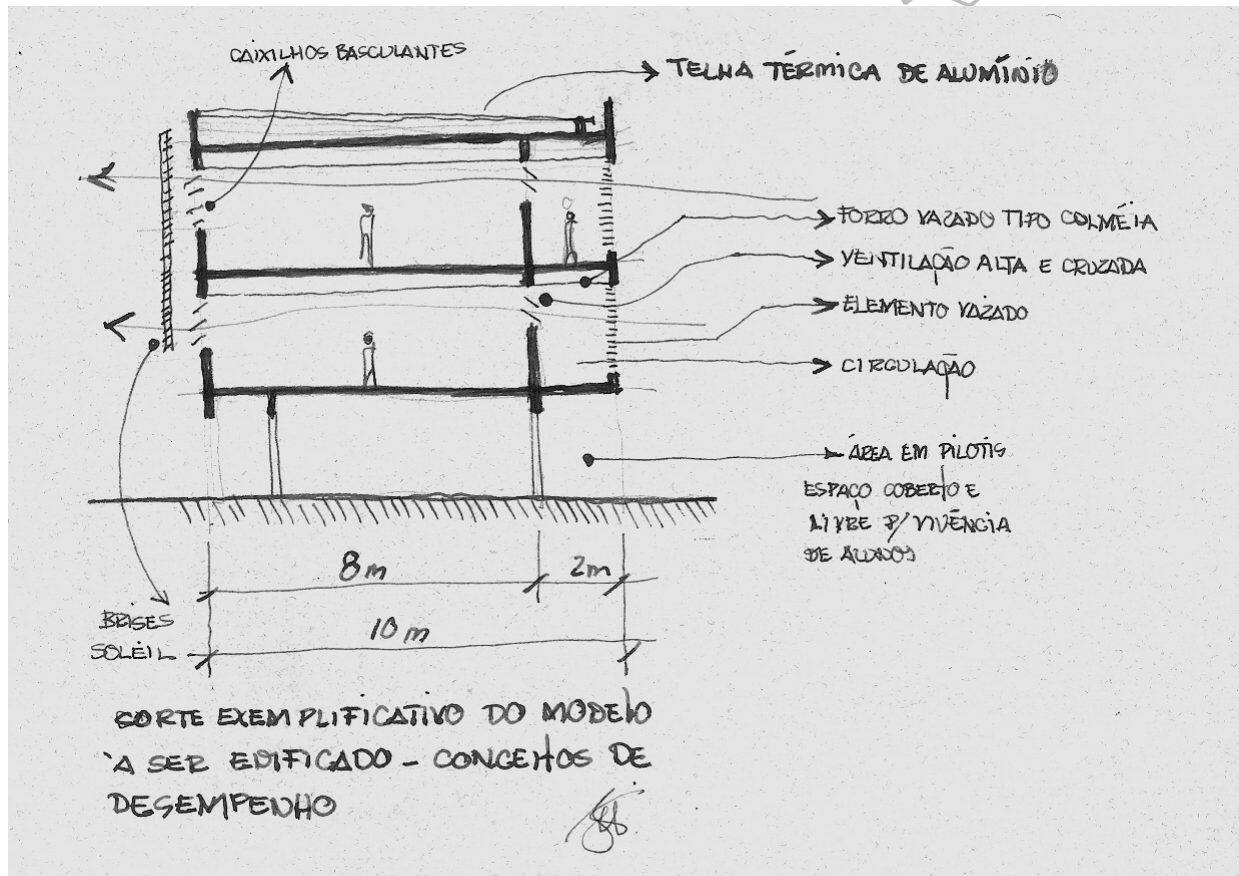 CAIXILHOS BASCULANTES
TELHA TÉRMICA DE ALUMÍNIO
FORRO VAZADO TIPO COLMÉIA
VENTILAÇÃO ALTA E CRUZADA
ELEMENTO VAZADO
CIRCULAÇÃO
ÁREA EM PILOTIS
ESPAÇO COBERTO E
LIVRE P/ VIVÊNCIA
DE ALUNOS
8m
2m
10m
BRISES
SOLÉIL
CORTE EXEMPLIFICATIVO DO MODELO
A SER EDIFICADO - CONCEITOS DE
DESEMPENHO